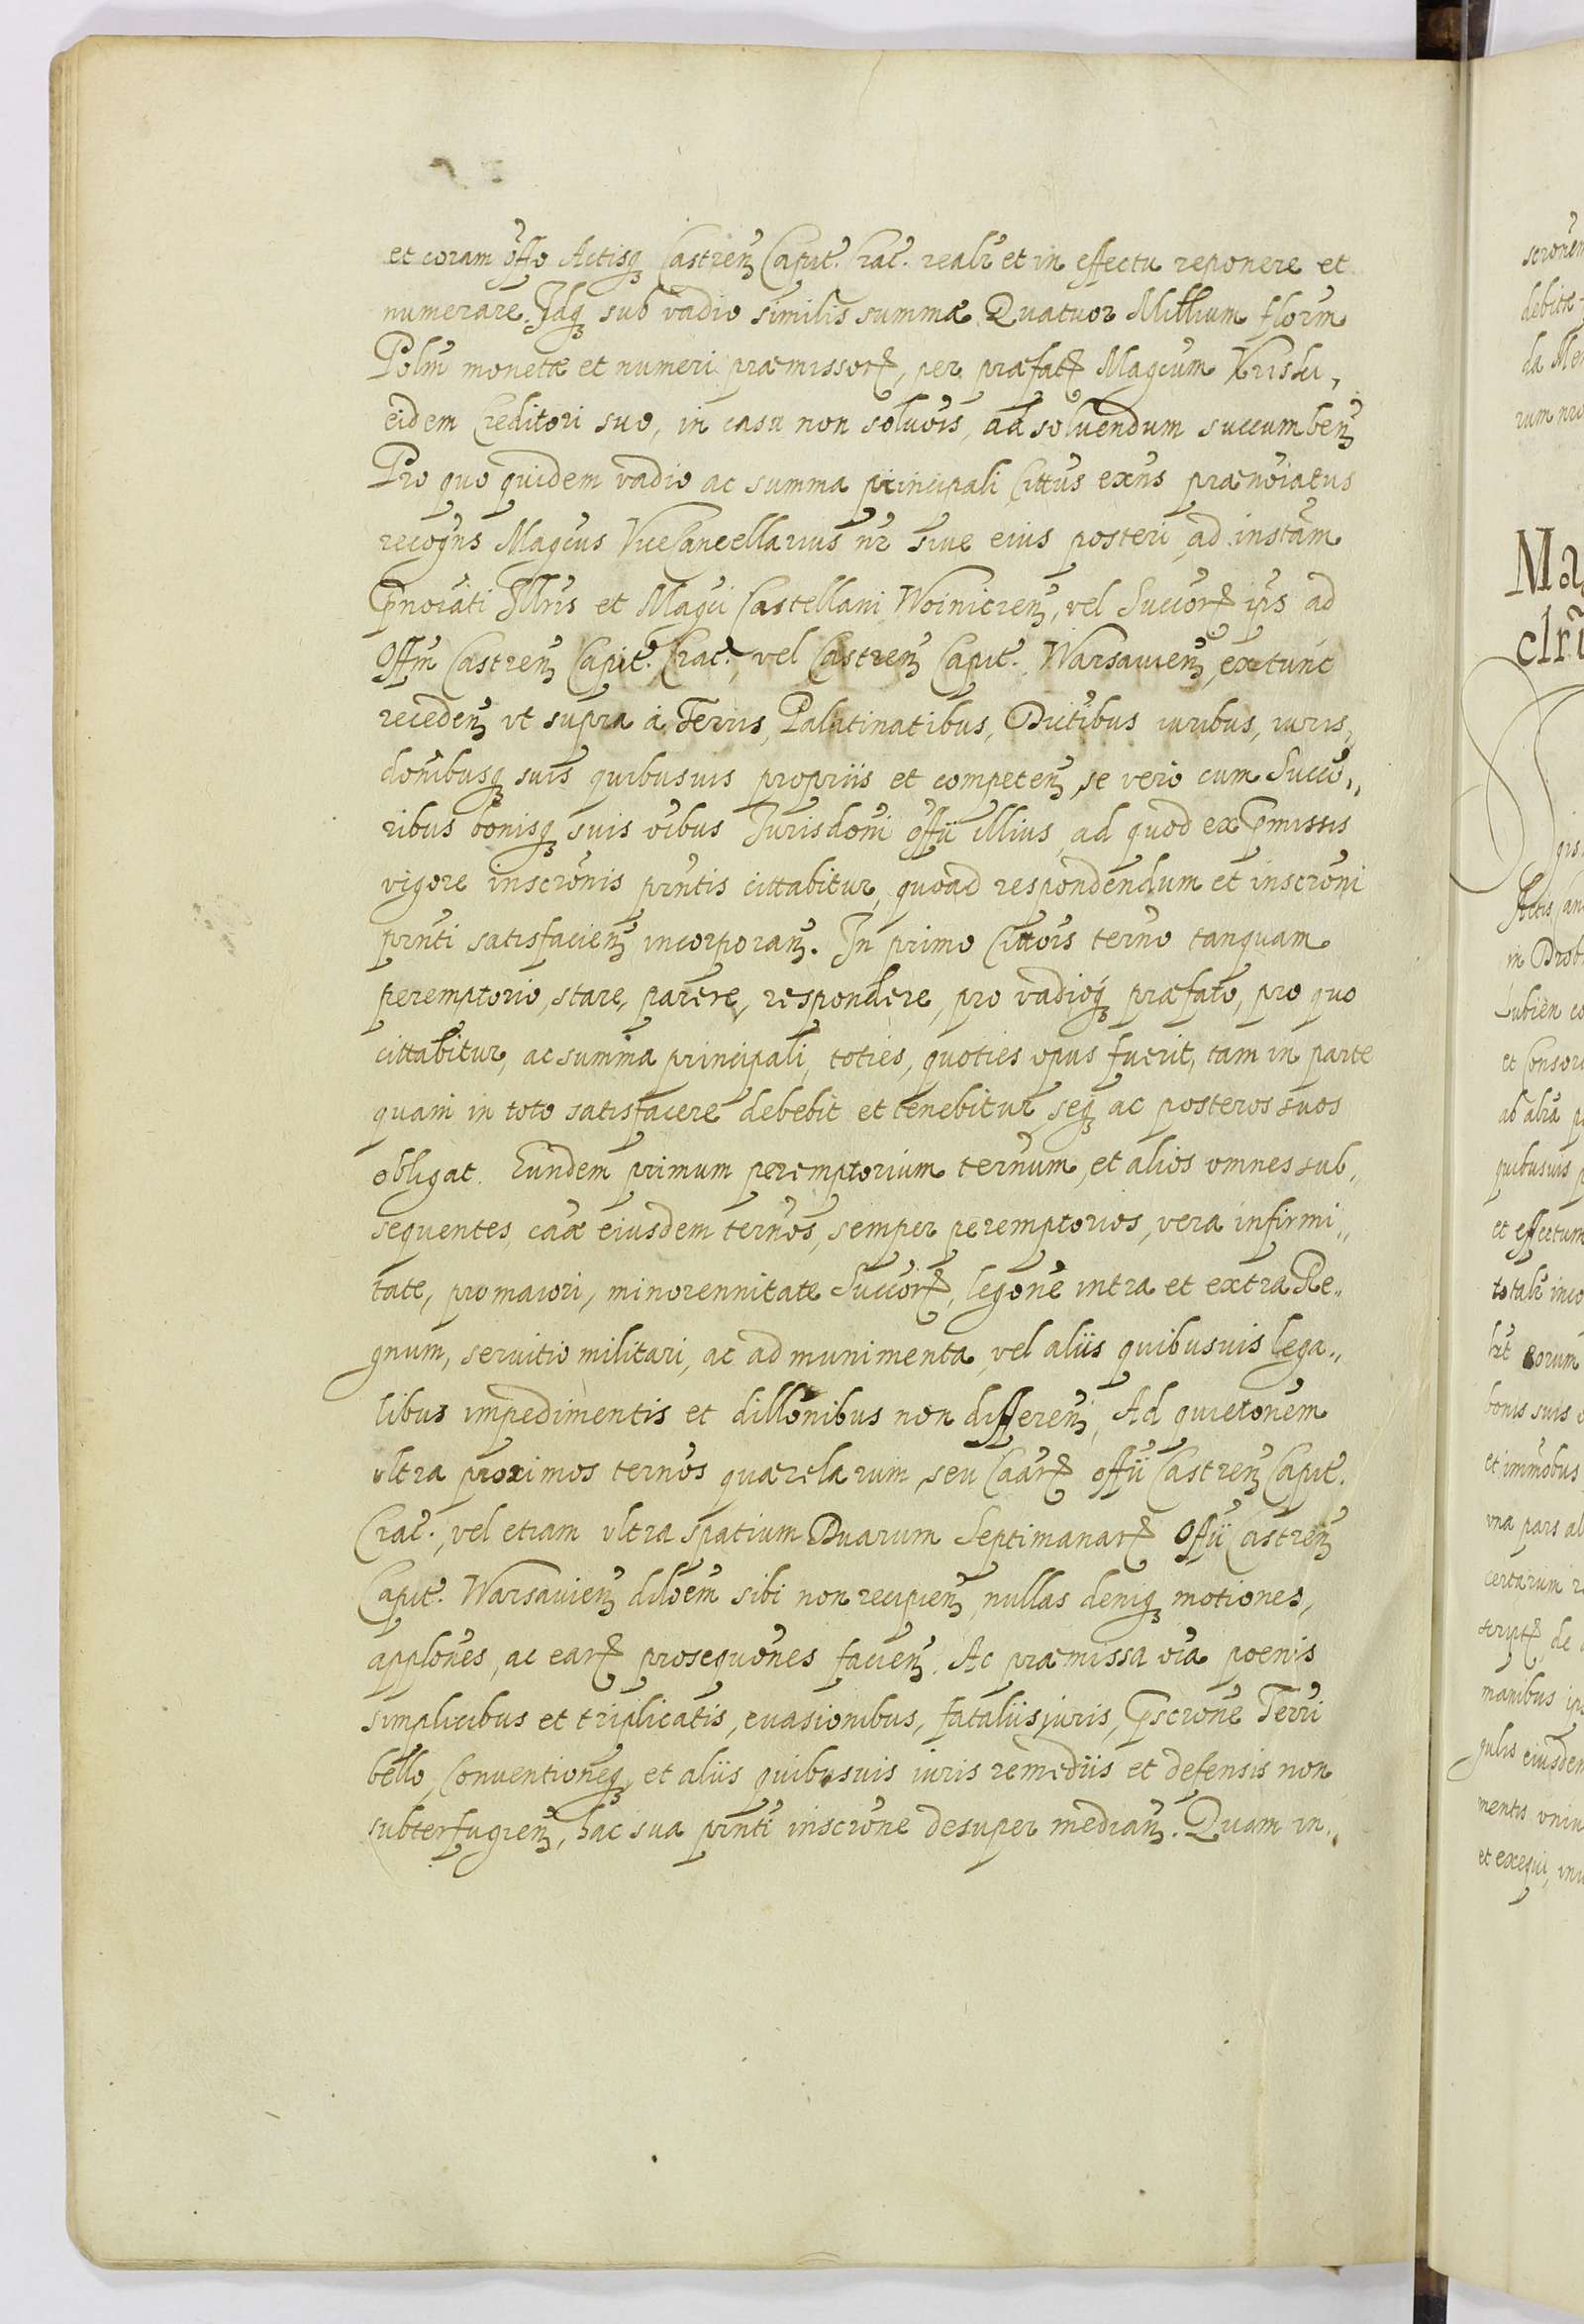 et coram offo Actisq Castren Capit. Crac. realr et in effectu reponere et
numerare. Idq sub vadio similis summæ Quatuor Millium florm
Polm monetæ et numeri præmissor, per præfat Magcum
eidem Creditori suo, in casu non soluõis, ad soluendum succumben
Pro quo quidem vadio ac summa principali, Cittus exns prænoiatus
recogns Magcus ViceCancellarius nr siue eius posteri, ad instam
pnoiati Illris et Magci Castellani Woinicien, vel Succor ips ad
Offm Castren Capit. Crac., vel Castren Capit. Warsauien, extunc
receden vt supra à Terris, Palatinatibus, Dictibus iuribus, iuris,
donibusq suis quibusuis propriis et competen, se vero cum Succo„
ribus bonisq suis oibus Jurisdoni offii illius, ad quod ex pmissis
vigore inscronis prntis cittabitur, quoad respondendum et inscroni
prnti satisfacien incorporan. In primo Cittois terno tanquam
peremptorio, stare, parere, respondere, pro vadioq præfato, pro quo
cittabitur, ac summa principali, toties, quoties opus fuerit, tam in parte
quam in toto satisfacere debebit et tenebitur, seq ac posteros suos
obligat. Eundem primum peremptorium ternum, et alios omnes sub„
sequentes, caæ eiusdem ternos, semper peremptorios, vera infirmi„
tate, pro maiori, minorennitate Succor, legone intra et extra Re„
gnum, seruitio militari, ac ad munimenta, vel aliis quibusuis lega„
libus impedimentis et dillonibus non differen, Ad quietonem
vltra proximos ternos quærelarum, seu Caar offii Castren Capit.
Crac., vel etiam vltra spatium Duarum Septimanar Offii Castren
Capit. Warsauien diloem sibi non recipien, nullas deniq motiones,
applones, ac ear prosequones facien. Ac præmissa oia poenis
simplicibus et triplicatis, euasionibus, fataliis iuris, pscrone Terri
bello, Conuentioneq et aliis quibusuis iuris remediis et defensis non
subterfugien, hac sua prnti inscrone desuper median. Quam in„